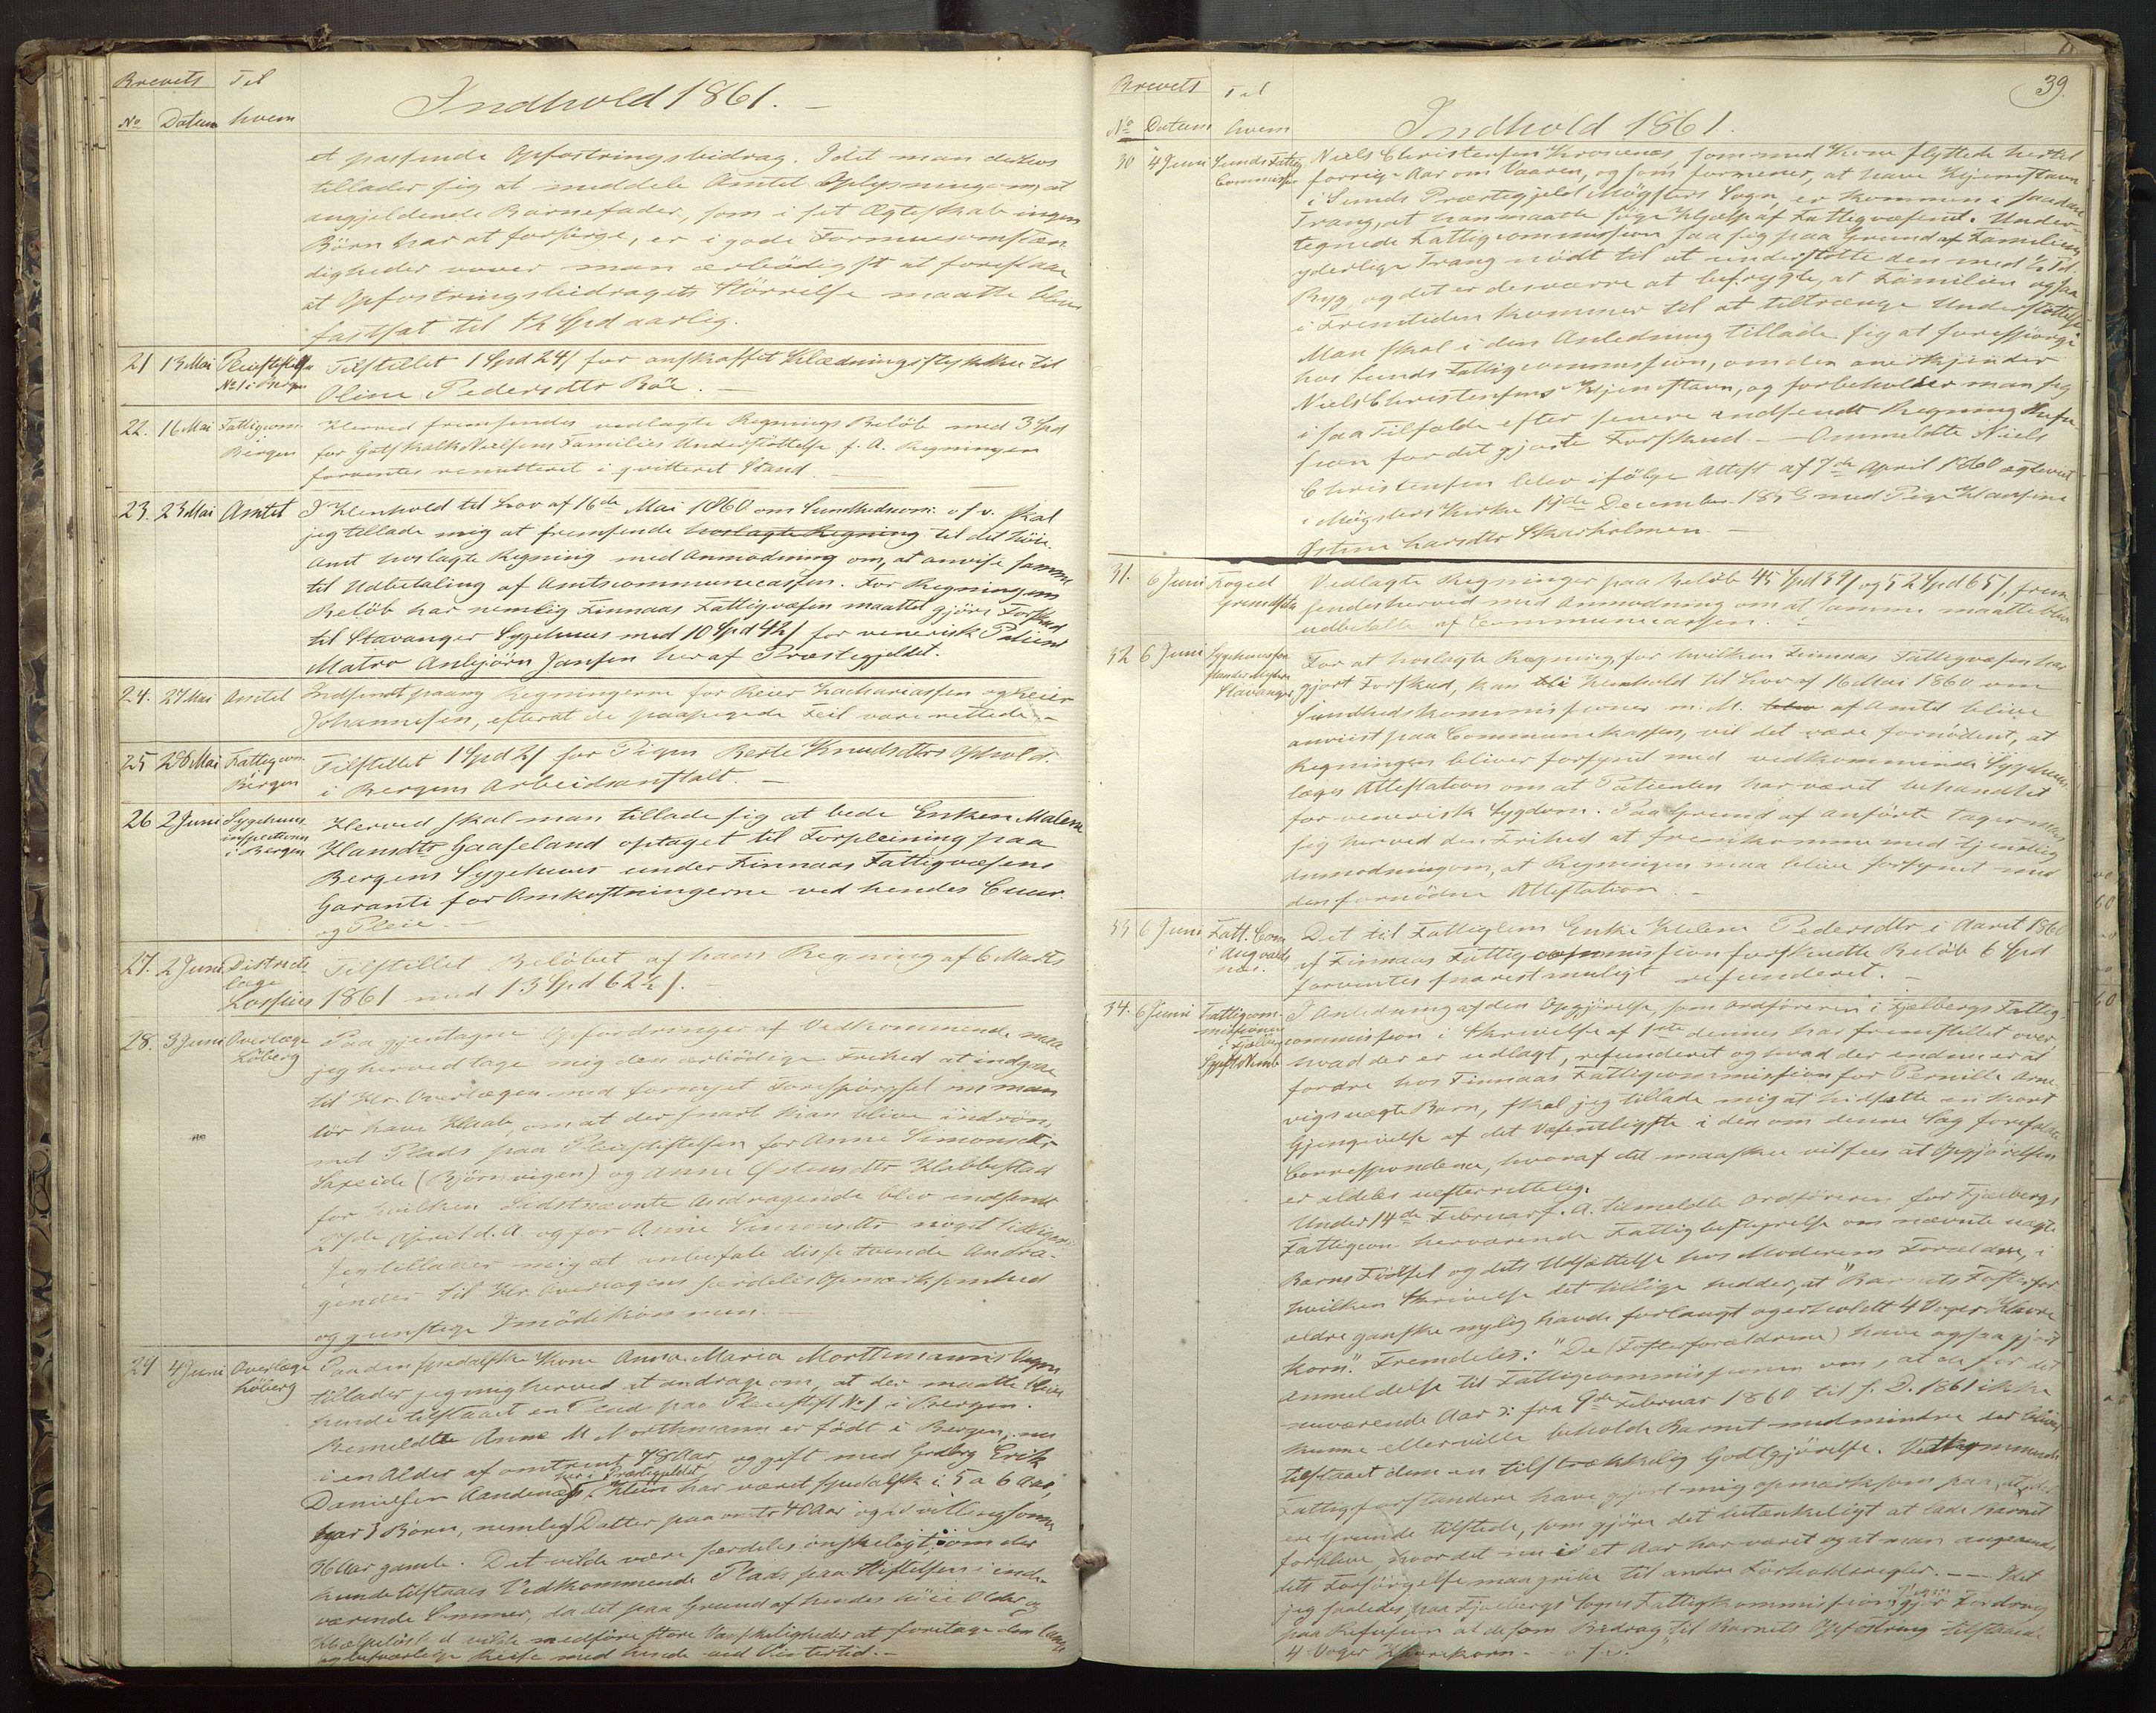 Brevets Til
No Datum hvem Indhold 1861.
et passende Opfostringsbidrag. Idet man derhos
tillader sig at meddele Amtet Oplysning om, at
angjeldende Barnefader, som i sit Ægteskab ingen
Børn har at forsørge, er i gode Formuesomstæn
digheder vover man ærbødigst at foreslaae
at Opfostringsbidragets Størrelse maatte blive
fastsat til 12 Spd aarlig.
21 13 Mai Pleiestiftelsen No 1 i Bergen Tilstillet 1 Spd 24 s for anskaffet Klædningsstykker til
Oline Pedersdtr Böe. —
22. 16 Mai Fattigcom. Bergen Herved fremsendes vedlagte Regnings Belöb med 3 Spd
for Gotskalk Nielsens Families Understöttelse f. A. Regningen
forventes remitteret i qvitteret Stand.
23. 23 Mai Amtet I Henhold til Lov af 16de Mai 1860 om Sundhedscom: o s v. skal
jeg tillade mig at fremsende hoslagte Regning til det höie
Amt hoslagte Regning med Anmodning om, at anvise samme
til Udbetaling af Amtscommunecassen. For Regningens
Belöb har nemlig Finnaas Fattigvæsen maattet gjöre Forskud
til Stavanger Sygehuus med 10 Spd 42 s for venerisk Patient
Matro Anbjörn Jansen her af Præstegjeldet.
24. 27 Mai Amtet Indsendt paany Regningerne for Reier Zachariassen og Reier
Johannesen, efterat de paapegede Feil vare rettede. —
25 28 Mai Fattigcom. Bergen Tilstillet 1 Spd 2 s for Pigen Berte Knudsdtrs Ophold
i Bergens Arbeidsanstalt. —
26 2 Juni Sygehuus inspectionen i Bergen Herved skal man tillade sig at bede Enken Malene
Hansdtr Gaaseland optaget til Forpleining paa
Bergens Sygehuus under Finnaas Fattigvæsens
Garanti for Omkostningerne ved hendes Cuur
og Pleie —
27. 2 Juni Districts læge Lossius Tilstillet Belöbet af hans Regning af 6 Marts
1861 med 13 Spd 62½ s. —
28. 3 Juni Overlæge Löberg Paa gjentagne Opfordringer af Vedkommende maa
jeg herved tage mig den ærbödige Frihed at indgaae
til Hr. Overlægen med fornyet Forespörgsel om man
tör have Haab, om at der snart kan blive indröm
met Plads paa Pleiestiftelsen for Anne Simonsdtr
(Björnevigen) og Anne Østensdtr Habbestad
for hvilken Sidstnævnte Andragende blev indsendt
27de April d. A. og for Anne Simonsdtr noget tidligere
Jeg tillader mig at anbefale disse tvende Andra-
gender til Hr Overlægens særdeles Opmærksomhed
og gunstige Imödekommen. —
29 4 Juni Overlæge Löberg Paa den spedalske Kone Anna Maria Morthmanns Vegne
tillader jeg mig herved at andrage om, at der maatte blive
hende tilstaaet en Plads paa Pleiestift. No 1 i Bergen.
Bemeldte Anne M Morthmann er födt i Bergen, nu
i en Alder af omtrent 48 Aar, og gift med Grdbrg Erik
Danielsen Aandenæs, her i Præstegjeldet, har været spedalsk i 5 a 6 Aar,
har 3 Börn, nemlig 1 Datter paa omtr 40 Aar og 2 Tvillingsönner
36 Aar gamle. Det vilde være særdeles önskeligt om der
kunde tilstaaes Vedkommende Plads paa Stiftelsen i inde
værende Sommer, da det paa Grund af hendes höie Alder og
Hjælpelöshed vilde medföre store Vanskeligheder at foretage den lange
og besværlige Reise med hende ved Vintertid. —
39.
Brevets Til
No Datum hvem Indhold 1861.
30 4 Juni Sunds Fattig Commission Niels Christensen Krosnæs, som med Kone flyttede hertil
forrige Aar om Vaaren, og som formener, at have Hjemstavn
i Sunds Præstegjeld Mögsters Sogn, er kommen i saadan
Trang, at han maatte söge Hjælp af Fattigvæsenet. Under-
tegnede Fattigcommission saa sig paa Grund af Familiens
yderlige Trang nödt til at understötte den med ½ Td.
Byg og det er desværre at befrygte, at Familien ogsaa
i Fremtiden kommer til at tiltrænge Understöttelse.
Man skal i den Anledning tillade sig at forespörge
hos Sunds Fattigcommission, om den anerkjender
Niels Christensens Hjemstavn, og forbeholder man sig
i saa Tilfælde efter senere indsendt Regning Refu
sion for det gjorte Forskud. — Ommeldte Niels
Christensen blev ifölge Attest af 7de April 1860 ægteviet
i Mögsters Kirke 19de December 1859 med Pige
Østine Larsdtr Skarholmen —
31. 6 Juni Foged Vedlagte Regninger paa Belöb 45 Spd 39 s og 52 Spd 65 s, frem
sendes herved med Anmodning om at samme maatte blive
udbetalte af Communecassen. —
32 6 Juni Sygehuusfor stander Stavanger For at hoslagte Regning, for hvilken Finnaas Fattigvæsen har
gjort Forskud, kan i Henhold til Lov af 16 Mai 1860 om
Sundhedskommissioner m. M. blive af Amtet blive
anviist paa Communekassen, vil det være fornödent, at
Regningen bliver forsynet med vedkommende Sygehuus
læges Attestation om at Patienten har været behandlet
for venerisk Sygdom. Paa Grund af anförte tager man
sig herved den Frihed at fremkomme med tjenstlig
Anmodning om, at Regningen maa blive forsynet med
den fornödne Attestation. —
33 6 Juni Fatt. Com i Augvalds næs. Det til Fattiglem Enke Helene Pedersdtr i Aaret 1860
af Finnaas Fattigcommission forskudte Belöb 6 Spd
forventes snarest muligt refunderet. —
34. 6 Juni Fattigcom- missionen i Fjelberg I Anledning af den Opgjörelse, som Ordföreren i Fjelbergs Fattig-
commission i Skrivelse af 1ste dennes har fremstillet over
hvad der er udlagt, refunderet og hvad der endnu er at
fordre hos Finnaas Fattigcommission for Pernille Arne
vigs uægte Barn, skal jeg tillade mig at hidsætte en kort
Gjengivelse af det Væsentligste i den om denne Sag forefaldne
Correspondence, hvoraf det maaskee vil sees at Opgjörelsen
er aldeles uefterrettelig.
Under 14de Februar f. A. tilmeldte Ordföreren for Fjelbergs
Fattigcom. herværende Fattigbestyrelse om nævnte uægte
Barns Födsel og dets Udsættelse hos Moderens Forældre, i
hvilken Skrivelse det tillige hedder, at "Barnets Fosterfor
ældre ganske nylig havde forlangt og erholdt 4 Voger Havre
korn." Fremdeles: "De (Fosterforældrene) have ogsaa gjort
Anmeldelse til Fattigcommissionen om, at de for det
nuværende Aar ɔ: fra 9de Februar 1860 til s. D. 1861 ikke
kunne eller ville beholde Barnet medmindre der bliver
tilstaaet dem en tilstrækkelig Godtgjörelse. Vedkommende
Fattigforstandere have gjort mig opmærksom paa, at der
ere Grunde tilstede, som gjöre det betænkeligt at lade Barnet
forblive, hvor det nu i et Aar har været og at man angaaende
dets Forsörgelse maa gribe til andre Forholdsregler. — — Idet
jeg saaledes paa Fjelbergs Sogns Fattigkommissions Vegne gjör Fordring
paa Refusion af de som Bidrag til Barnets Opfostring tilstaaede
4 Voger Havrekorn — o s v.